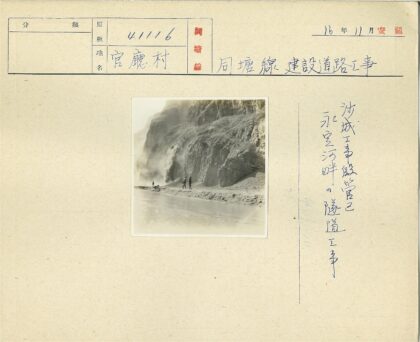 分類
原板
41116
地名
官廳村
同塘線
16年11月
同塘線 建設道路工事
沙城工事段管已
永定河畔の隧道工事